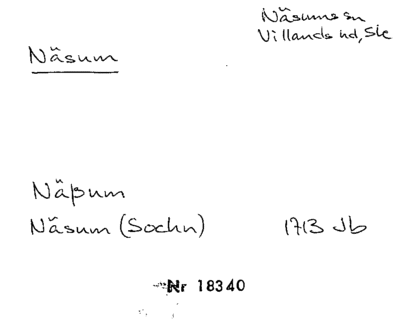 Näsums sn
Villands hd, Sk
Näsum
Näβum
Näsum (Sochn) 1713 Jb
Nr 18340